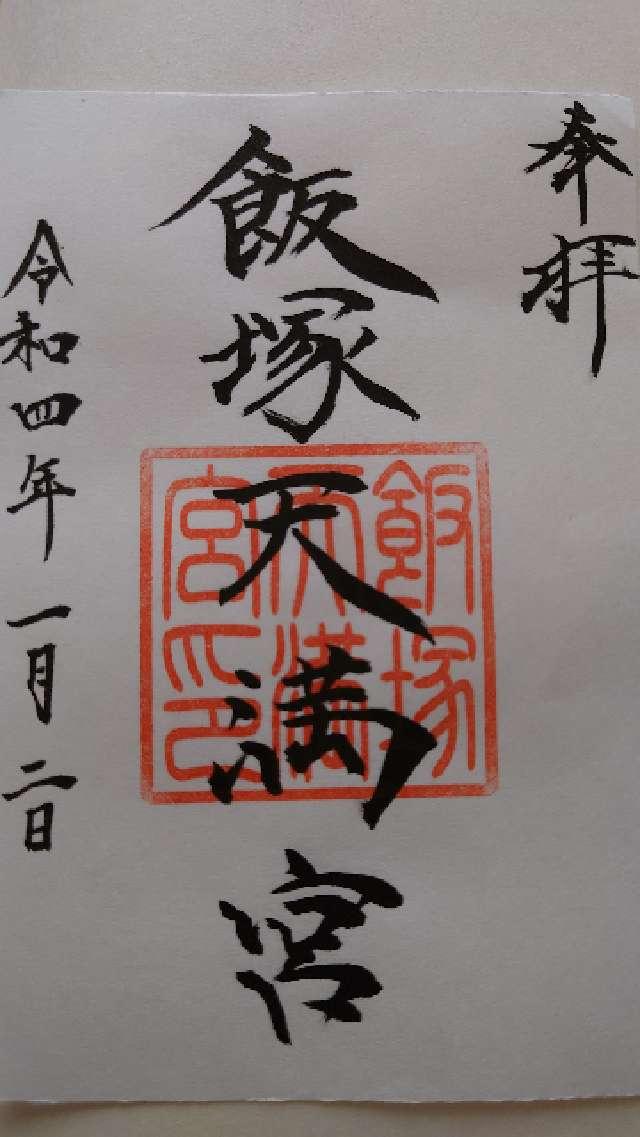 奉拝
飯塚天満宮
飯塚
天満
宮印
令和四年一月二日